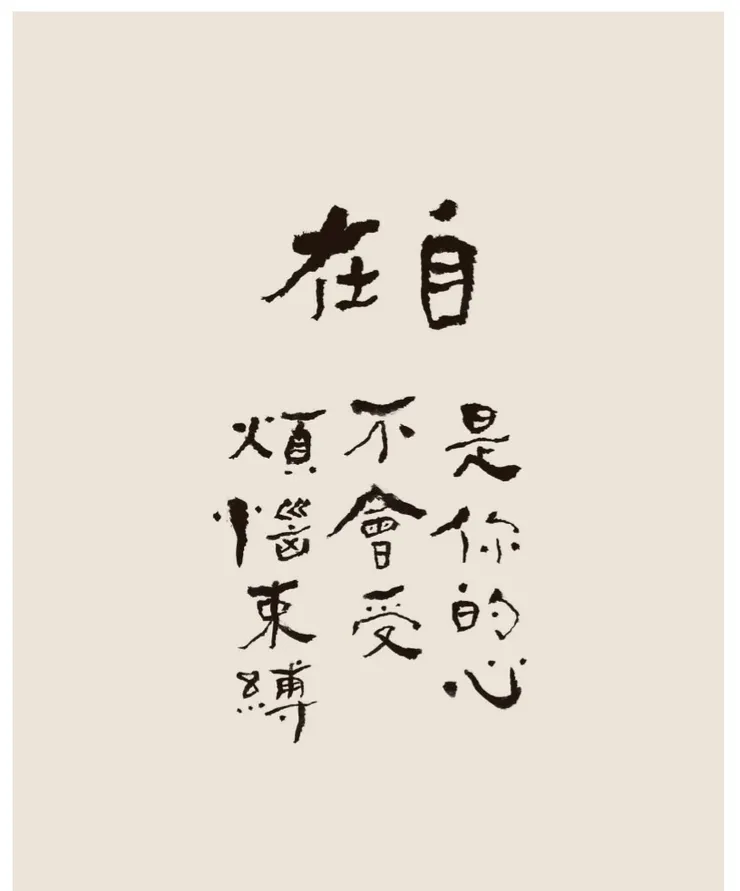 自在
是你的心
不會受
煩惱束縛